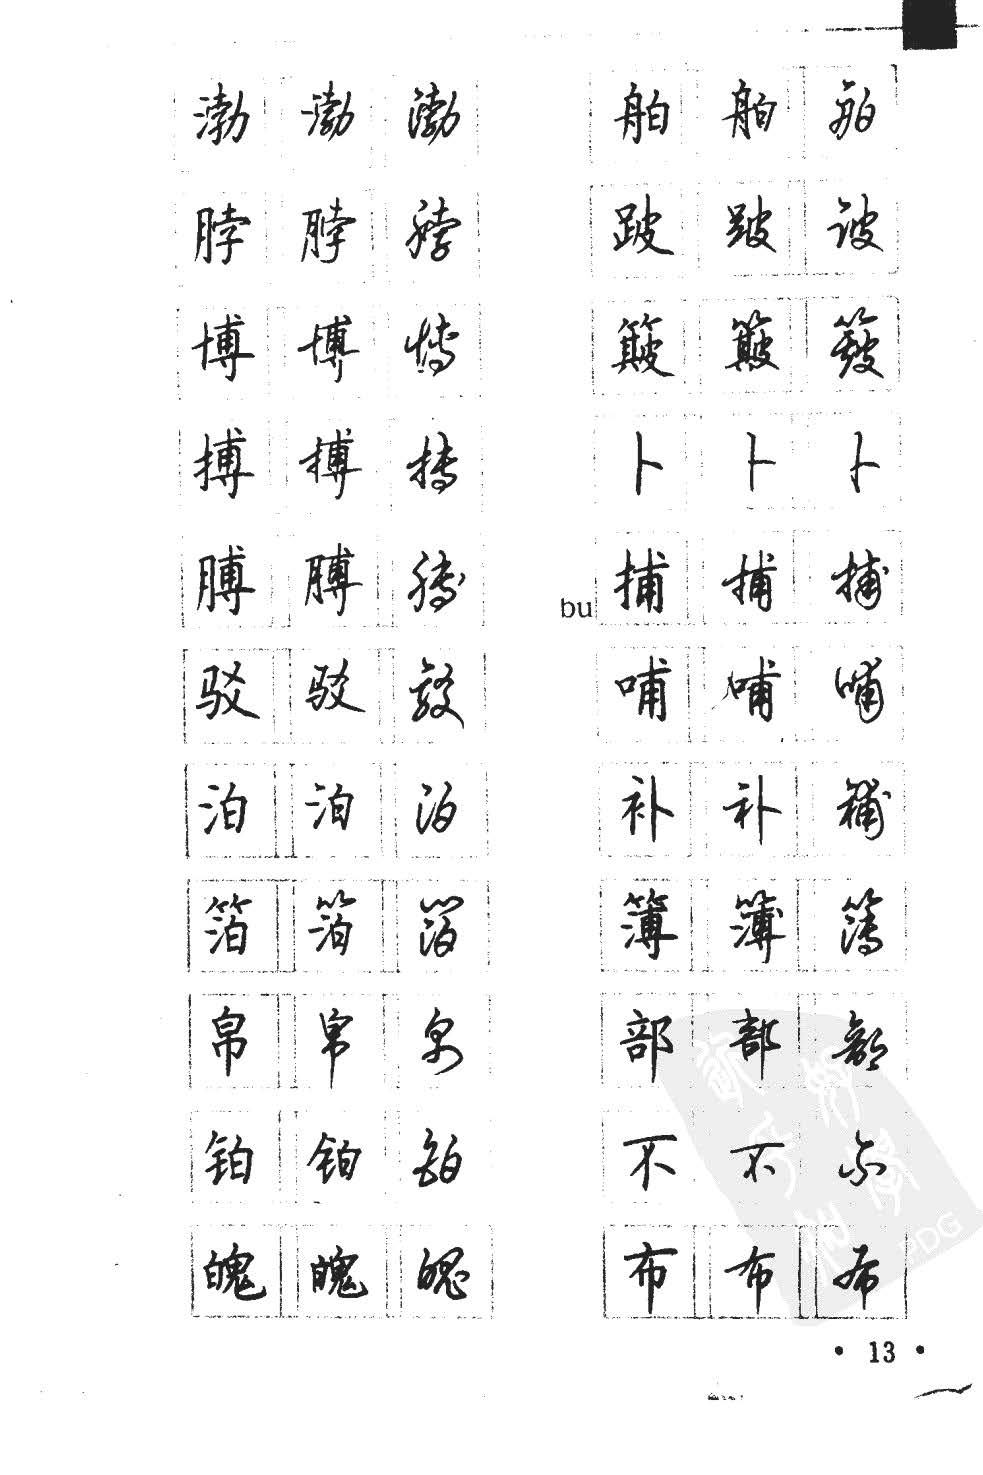 渤 渤 渤
脖 脖 脖
博 博 博
搏 搏 搏
膊 膊 膊
驳 驳 驳
泊 泊 泊
箔 箔 箔
帛 帛 帛
铂 铂 铂
魄 魄 魄
舶 舶 舶
跛 跛 跛
簸 簸 簸
卜 卜 卜
bu 捕 捕 捕
哺 哺 哺
补 补 補
簿 簿 簿
部 部 部
不 不 不
布 布 布
• 13 •
PDG